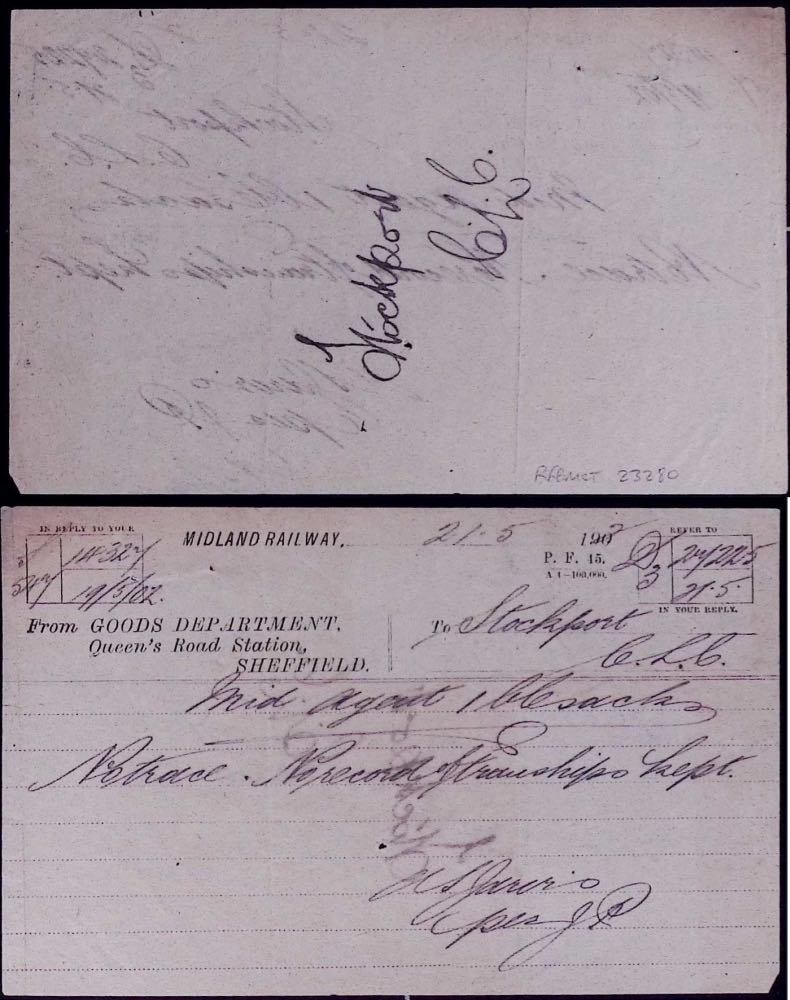 Stockport
C.L.C.
23280
IN REPLY TO YOUR
MIDLAND RAILWAY,
21·5 1902
REFER TO
P. F. 45.
A 1—100,000.
19/5/02.
21·5·
IN YOUR REPLY.
From GOODS DEPARTMENT,
Queen's Road Station,
SHEFFIELD.
To Stockport
C.L.C.
Mid. Agent 1 sacks
No trace. No record of tranships kept.
per J P